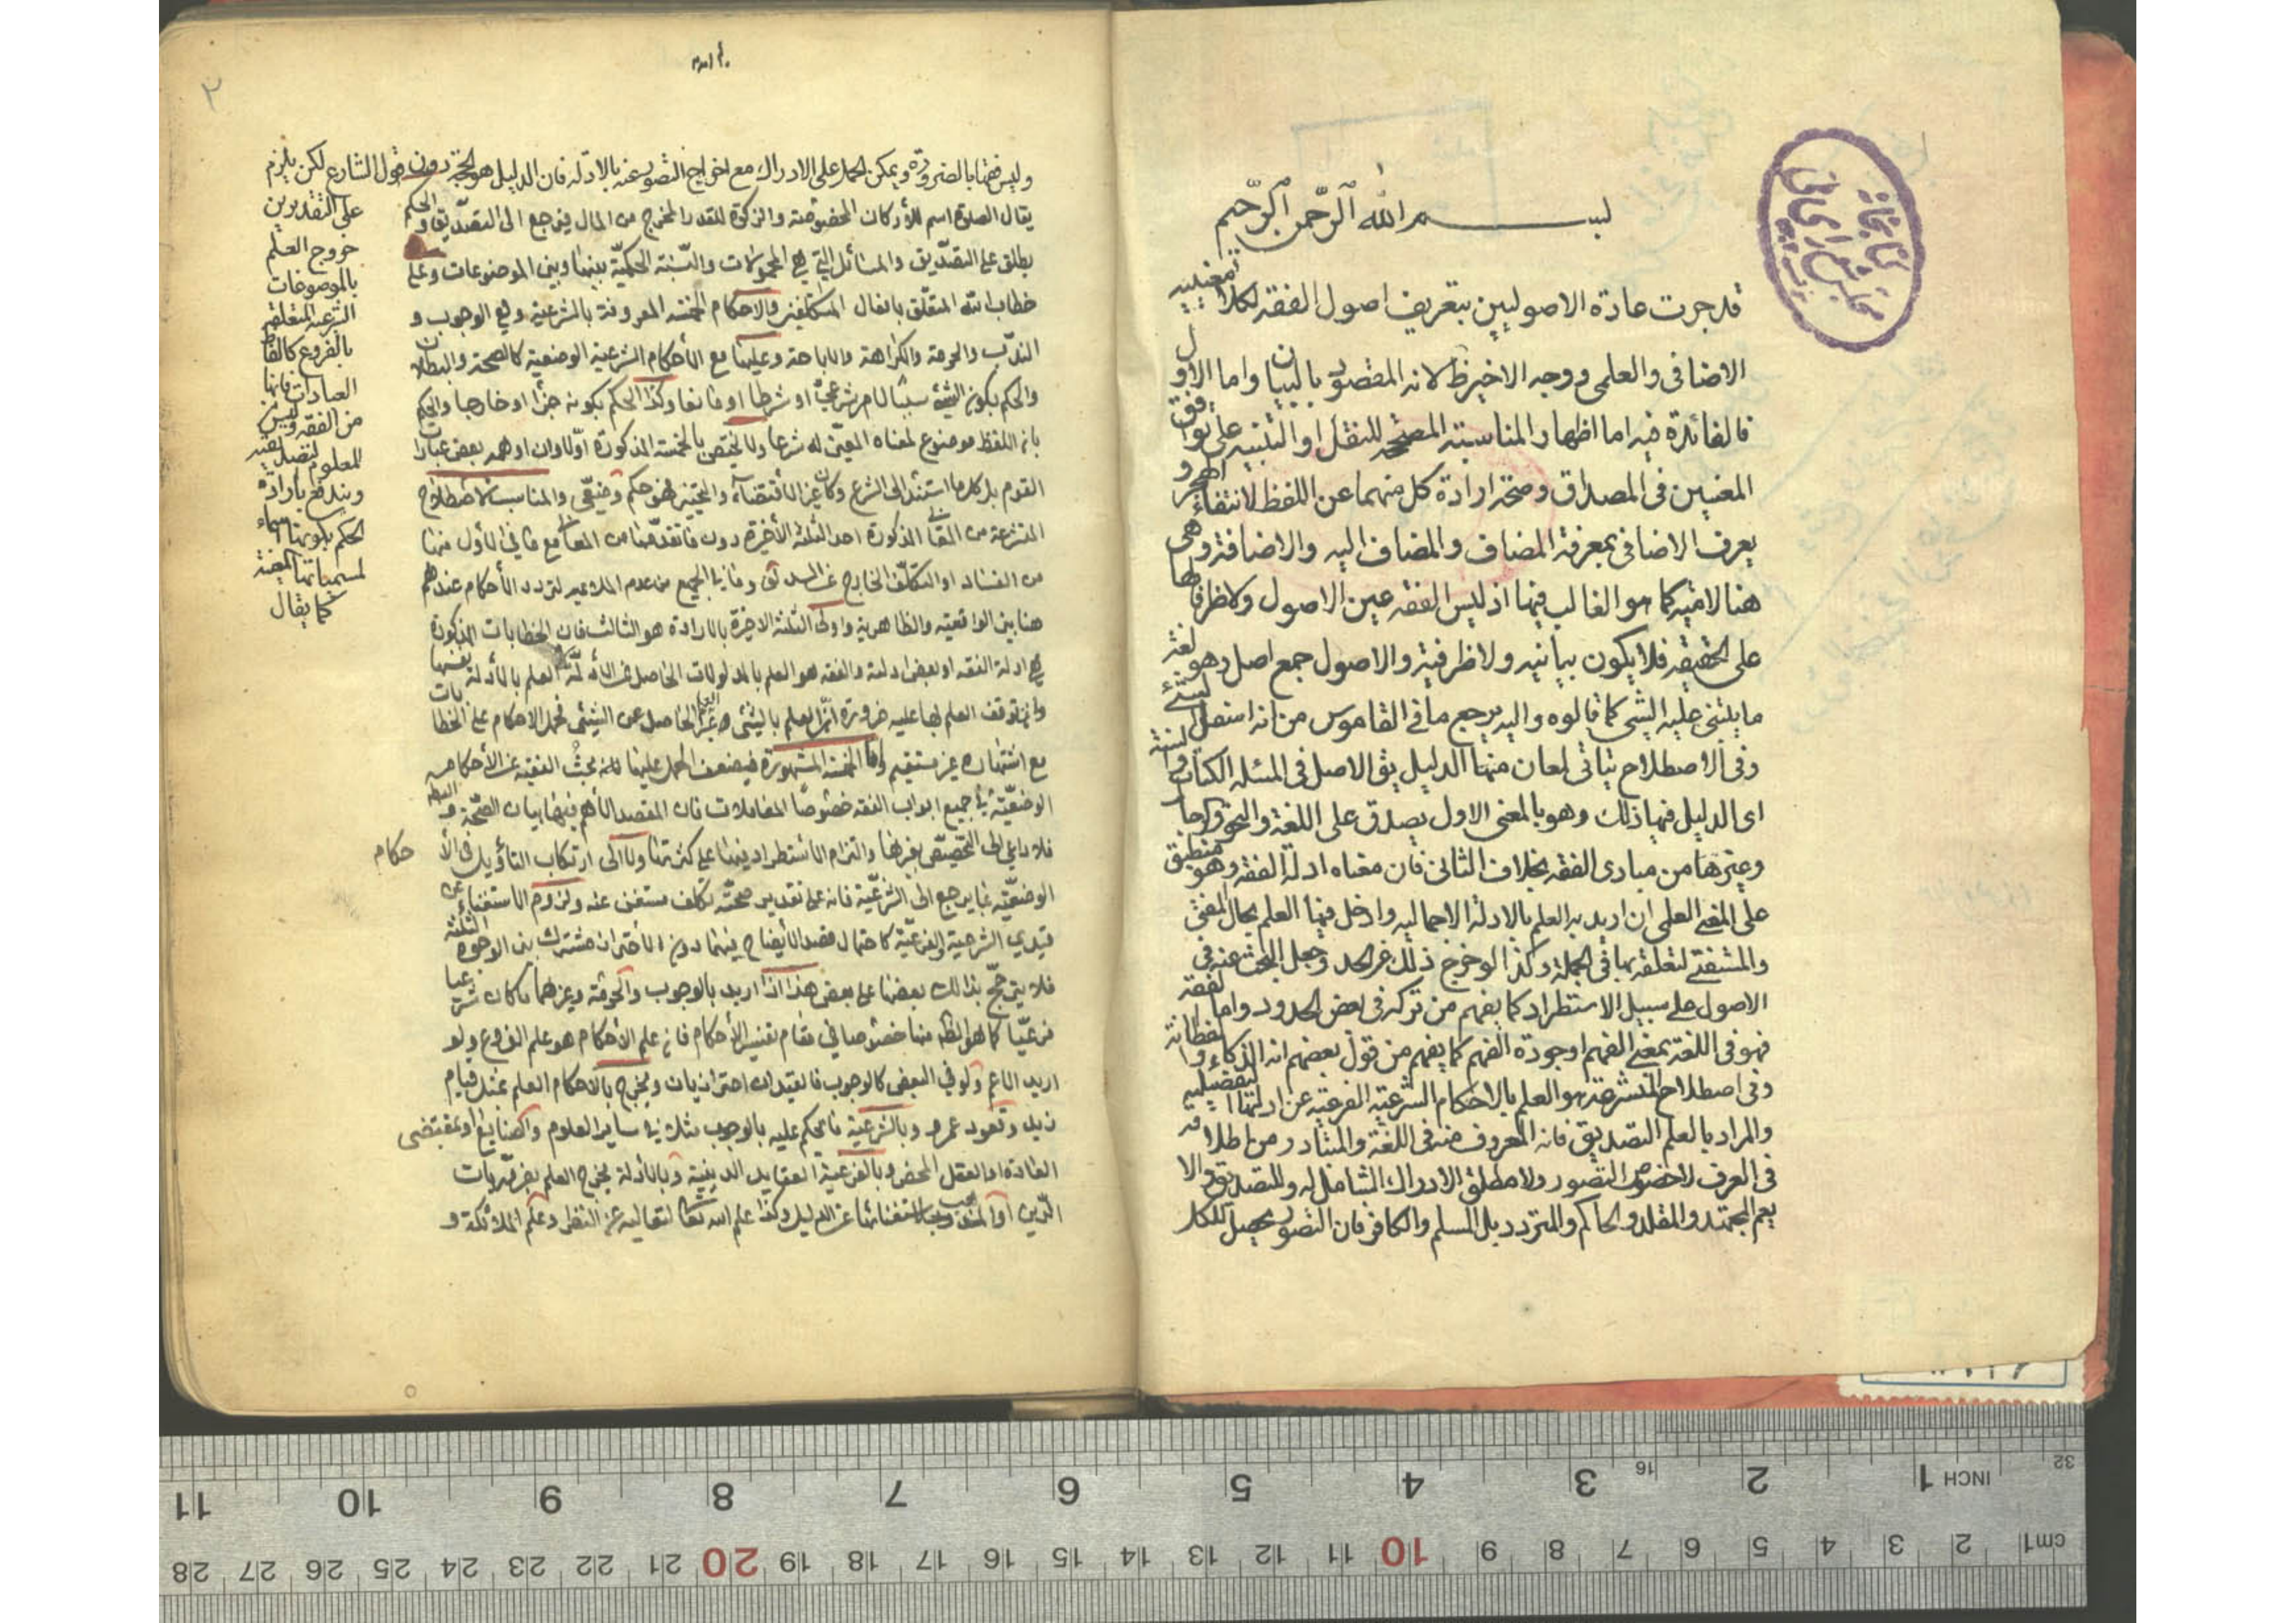 بسم الله الرحمن الرحيم
قد جرت عادة الاصوليين بتعريف اصول الفقه لكلا معنييه
الاضافى والعلمى ووجه الاخير ظ لانه المقصود بالبيان واما الاول
فالفائدة فيه اما اظهار المناسبة المصححه للنقل او التنبيه على توافق
المعنيين فى المصداق وصحة ارادة كل منهما عن اللفظ لانتفاء الهجر و
يعرف الاضافى بمعرفة المضاف والمضاف اليه والاضافة وهى
هنا لاميه كما هو الغالب فيها اذ ليس الفقه عين الاصول ولا ظرفا لها
على الحقيقه فلا يكون بيانيه ولا ظرفية والاصول جمع اصل وهو لغة
ما يبتنى عليه الشئ كما قالوه واليه يرجع ما فى القاموس من انه اسفل الشئ
وفى الاصطلاح ياتى لمعان منها الدليل يق الاصل فى المسئله الكتاب والسنة
اى الدليل فيها ذلك وهو بالمعنى الاول يصدق على اللغة والنحو والرجال
وغيرها من مبادى الفقه بخلاف الثانى فان معناه ادلة الفقه وهو منطبق
على المعنى العلمى ان اريد به العلم بالادلة الاجماليه وادخل فيها العلم بحال المفتى
والمستفتى لتعلقه بها فى الجملة وكذا لو خرج ذلك عن الحد وجعل البحث عنه فى
الاصول على سبيل الاستطراد كما يفهم من تركه فى بعض الحدود واما الفقه
فهو فى اللغة بمعنى الفهم او جودة الفهم كما يفهم من قول بعضهم انه الذكاء والفطانة
وفى اصطلاح المتشرعة هو العلم بالاحكام الشرعية الفرعيه عن ادلتها التفضيليه
والمراد بالعلم التصديق فانه المعروف منه فى اللغة والمتبادر من اطلاقه
فى العرف لا خصوص التصور ولا مطلق الادراك الشامل له وللتصديق والا
يعم المجتهد والمقلد والحاكم والمتردد بل المسلم والكافر فان التصور يحصل للكل
٢
وليس فقها بالضرورة ويمكن الحمل على الادراك مع اخراج التصور عنه بالادلة فان الدليل هو الحجة دون قول الشارع لكن يلزم
على التقديرين
خروج العلم
بالموصوفات
الشرعية المتعلقة
بالفروع كالفاظ
العبادات فانها
من الفقه وليس
المعلوم لتصديقه
ويندفع بارادة
الحكم بكونها اسماء
لمسمياتها المعينة
كما يقال
يقال الصلوة اسم للأركان المخصوصة والزكوة للقدر المخرج من المال فيرجع الى التصديق والحكم
يطلق على التصديق والمسائل التي هي المحمولات والنسبة الحكمية بينها وبين الموضوعات وعلى
خطاب الله المتعلق بافعال المكلفين والاحكام الخمسه المعروفة بالشرعية وهي الوجوب و
الندب والحرمة والكراهة والاباحة وعليها مع الأحكام الشرعية الوضعية كالصحة والبطلان
والحكم بكون الشئ سببا لامر شرعي او شرطا او مانعا وكذا الحكم بكونه جزأ او خارجا والحكم
بان اللفظ موضوع لمعناه المعين له شرعا ولا يختص بالخمسة المذكورة اولا وان اوهمه بعض عبارات
القوم بل كل ما استند الى الشرع وكان غير الاقتضاء والتخيير فهو حكم وضعي والمناسب للاصطلاح
المنتزعة من المعاني المذكورة احد الثلثة الأخيرة دون ما تقدمها من المعاني مع ما في الأول منها
من الفساد او التكلف الخارج عن السداد وما في الجميع من عدم الملائمه لتردد الأحكام عندهم
هنا بين الواقعية والظاهرية واولى الثلثة الاخيرة بالارادة هو الثالث فان الخطابات المذكورة
هي ادلة الفقه او بعض ادلته والفقه هو العلم بالمدلولات الحاصل عن الأدلة لا العلم بالأدلة نفسها
وان توقف العلم بها عليه ضرورة ان العلم بالشئ غير العلم الحاصل عن الشئ فحمل الاحكام على الخطابات
مع اشتهاره غير مستقيم واما الخمسة المشهورة فيضعف الحمل عليها لانه بحث الفقيه عن الأحكام
الوضعية في جميع ابواب الفقه خصوصا المعاملات فان المقصد الأهم فيها بيان الصحة والبط
فلا داعي الى التخصيص بغيرها والتزام الاستطراد فيها على كثرتها ولا الى ارتكاب التأويل في الأحكام
الوضعية بما يرجع الى الشرعية فانه على تقدير صحته تكلف مستغنى عنه ولزوم الاستغناء عن
قيدي الشرعية والفرعية كاحتمال قصد الأيضاح فيهما دون الاحتراز مشترك بين الوجوه الثلثة
فلا يترجح بذلك بعضها على بعض هذا اذا اريد بالوجوب والحرمة وغيرهما ما كان شرعيا
فرعيا كما هو الظ منها خصوصا في مقام تفسير الأحكام فان علم الأحكام هو علم الفروع ولو
اريد الاعم ولو في البعض كالوجوب فالقيدان احترازيان ويخرج بالاحكام العلم بمثل قيام
زيد وقعود عمرو وبالشرعية ما يحكم عليه بالوجوب مثلا في ساير العلوم والصنايع او بمقتضى
العادة او العقل المحض وبالفرعية العقايد الدينية وبالأدلة يخرج العلم بضروريات
الدين او المذهب لاستغنائها عن الدليل وكذا علم الله تعالى لتعاليه عن النظر وعلم الملائكة و
INCH 1 2 3 4 5 6 7 8 9 10 11
16 32
cm1 2 3 4 5 6 7 8 9 10 11 12 13 14 15 16 17 18 19 20 21 22 23 24 25 26 27 28